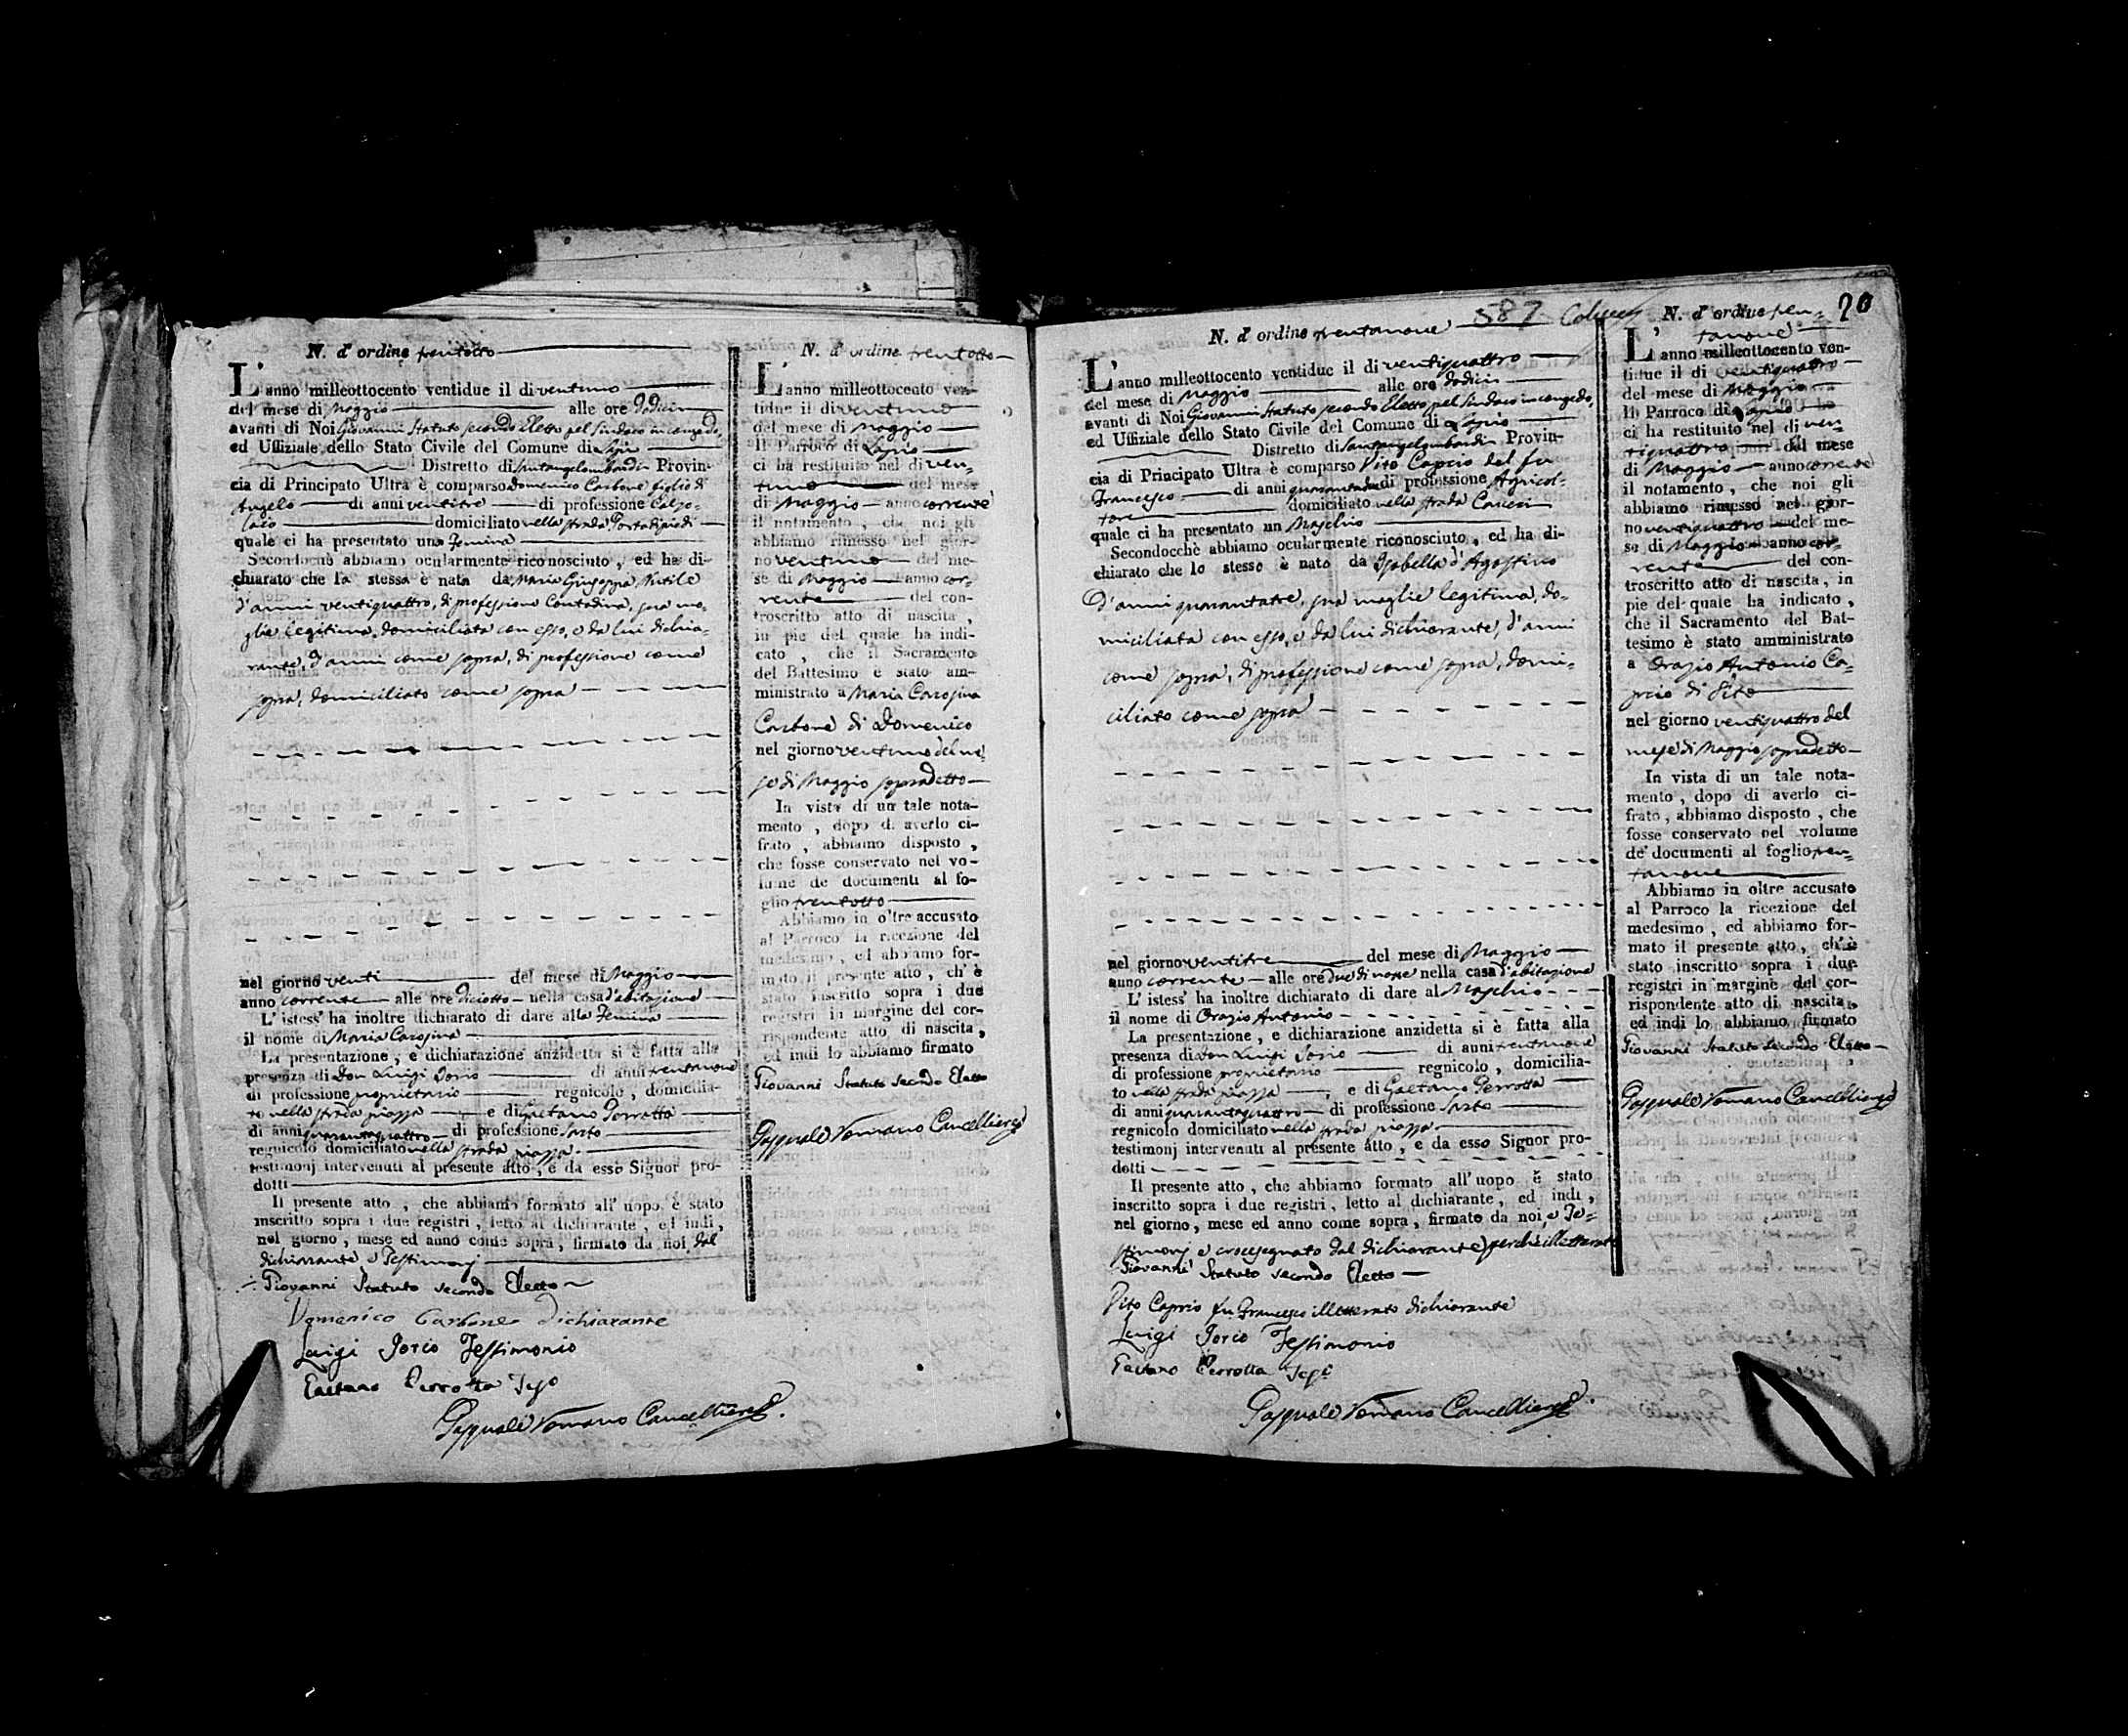 N. d' ordine trentotto
L' anno milleottocento ventidue il di ventuno
del mese di Maggio alle ore dodici
avanti di Noi Giovanni Statuto secondo Eletto pel Sindaco in congedo,
ed Uffiziale dello Stato Civile del Comune di Lapio
Distretto di Santangelombardi Provin-
cia di Principato Ultra è comparso Domenico Carbone figlio di
Angelo di anni ventitre di professione Calzo-
lajo domiciliato nella strada
quale ci ha presentato una Femina
Secondocchè abbiamo ocularmente riconosciuto, ed ha di-
chiarato che la stessa è nata da Maria Giuseppa
d'anni ventiquattro, di professione Contadina, sua mo-
glie legitima, domiciliata con esso, e da lui dichia-
rante, d'anni come sopra, di professione come
sopra, domiciliato come sopra
nel giorno venti del mese di Maggio
anno corrente alle ore diciotto nella casa d'abitazione
L' istess' ha inoltre dichiarato di dare alla Femina
il nome di Maria Carosina
La presentazione, e dichiarazione anzidetta si è fatta alla
presenza di Don Luigi Iorio di anni trentanove
di professione proprietario regnicolo, domicilia-
to nella strada piazza e di Gaetano Perrotta
di anni quarantaquattro di professione Sarto
regnicolo domiciliato nella strada piazza
testimonj intervenuti al presente atto, e da esso Signor pro-
dotti
Il presente atto, che abbiamo formato all' uopo è stato
inscritto sopra i due registri, letto al dichiarante, ed indi,
nel giorno, mese ed anno come sopra, firmato da noi, dal
dichiarante, e Testimonj
Giovanni Statuto secondo Eletto
Domenico Carbone Dichiarante
Luigi Iorio Testimonio
Gaetano Perrotta Teso
Pasquale Romano Cancelliere
N. d' ordine trentotto
L' anno milleottocento ven-
tidue il di ventuno
del mese di Maggio
Il Parroco di Lapio
ci ha restituito nel di ven-
tuno del mese
di Maggio anno corrente
il notamento, che noi gli
abbiamo rimesso nel gior-
no ventuno del me-
se di Maggio anno cor-
rente del con-
troscritto atto di nascita,
in pie del quale ha indi-
cato, che il Sacramento
del Battesimo è stato am-
ministrato a Maria Carosina
Carbone di Domenico
nel giorno ventuno del me-
se di Maggio sopradetto
In vista di un tale nota-
mento, dopo di averlo ci-
frato, abbiamo disposto,
che fosse conservato nel vo-
lume de documenti al fo-
glio trentotto
Abbiamo in oltre accusato
al Parroco la ricezione del
medesimo, ed abbiamo for-
mato il presente atto, ch' è
stato inscritto sopra i due
registri in margine del cor-
rispondente atto di nascita,
ed indi lo abbiamo firmato
Giovanni Statuto secondo Eletto
Pasquale Romano Cancelliere
587
N. d' ordine trentanove
L' anno milleottocento ventidue il di ventiquattro
del mese di Maggio alle ore dodici
avanti di Noi Giovanni Statuto secondo Eletto pel Sindaco in congedo,
ed Uffiziale dello Stato Civile del Comune di Lapio
Distretto di Santangelombardi Provin-
cia di Principato Ultra è comparso Vito Caprio del fu
Francesco di anni di professione Agricol-
tore domiciliato nella strada
quale ci ha presentato un Maschio
Secondocchè abbiamo ocularmente riconosciuto, ed ha di-
chiarato che lo stesso è nato da Isabella d'Agostino
d'anni quarantatre, sua moglie legitima, do-
miciliata con esso, e da lui dichiarante, d'anni
come sopra, di professione come sopra, domi-
ciliato come sopra
nel giorno ventitre del mese di Maggio
anno corrente alle ore due di notte nella casa d'abitazione
L' istess' ha inoltre dichiarato di dare al Maschio
il nome di Orazio Antonio
La presentazione, e dichiarazione anzidetta si è fatta alla
presenza di Don Luigi Iorio di anni trentanove
di professione proprietario regnicolo, domicilia-
to nella strada piazza, e di Gaetano Perrotta
di anni quarantaquattro di professione Sarto
regnicolo domiciliato nella strada piazza
testimonj intervenuti al presente atto, e da esso Signor pro-
dotti
Il presente atto, che abbiamo formato all' uopo è stato
inscritto sopra i due registri, letto al dichiarante, ed indi,
nel giorno, mese ed anno come sopra, firmato da noi, e Te-
stimonj e crocesegnato dal dichiarante perché illetterato
Giovanni Statuto secondo Eletto
Vito Caprio fu Francesco illetterato dichiarante
Luigi Iorio Testimonio
Gaetano Perrotta Teso
Pasquale Romano Cancelliere
20
N. d' ordine tren-
tanove
L' anno milleottocento ven-
tidue il di ventiquattro
del mese di Maggio
Il Parroco di Lapio
ci ha restituito nel di ven-
tiquattro del mese
di Maggio anno corrente
il notamento, che noi gli
abbiamo rimesso nel gior-
no ventiquattro del me-
se di Maggio anno cor-
rente del con-
troscritto atto di nascita, in
pie del quale ha indicato,
che il Sacramento del Bat-
tesimo è stato amministrato
a Orazio Antonio Ca-
prio di Vito
nel giorno ventiquattro del
mese di Maggio sopradetto
In vista di un tale nota-
mento, dopo di averlo ci-
frato, abbiamo disposto, che
fosse conservato nel volume
de' documenti al foglio tren-
tanove
Abbiamo in oltre accusato
al Parroco la ricezione del
medesimo, ed abbiamo for-
mato il presente atto, ch' è
stato inscritto sopra i due
registri in margine del cor-
rispondente atto di nascita,
ed indi lo abbiamo firmato
Giovanni Statuto secondo Eletto
Pasquale Romano Cancelliere